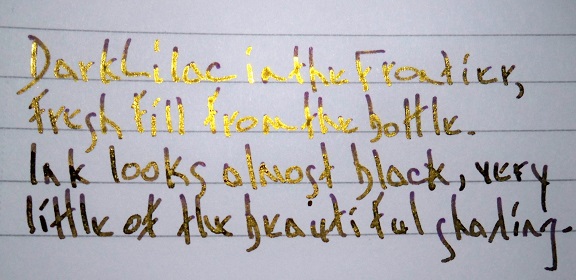 Dark Lilac in the Frontier,
fresh fill from the bottle.
Ink looks almost black, very
little of the beautiful shading.